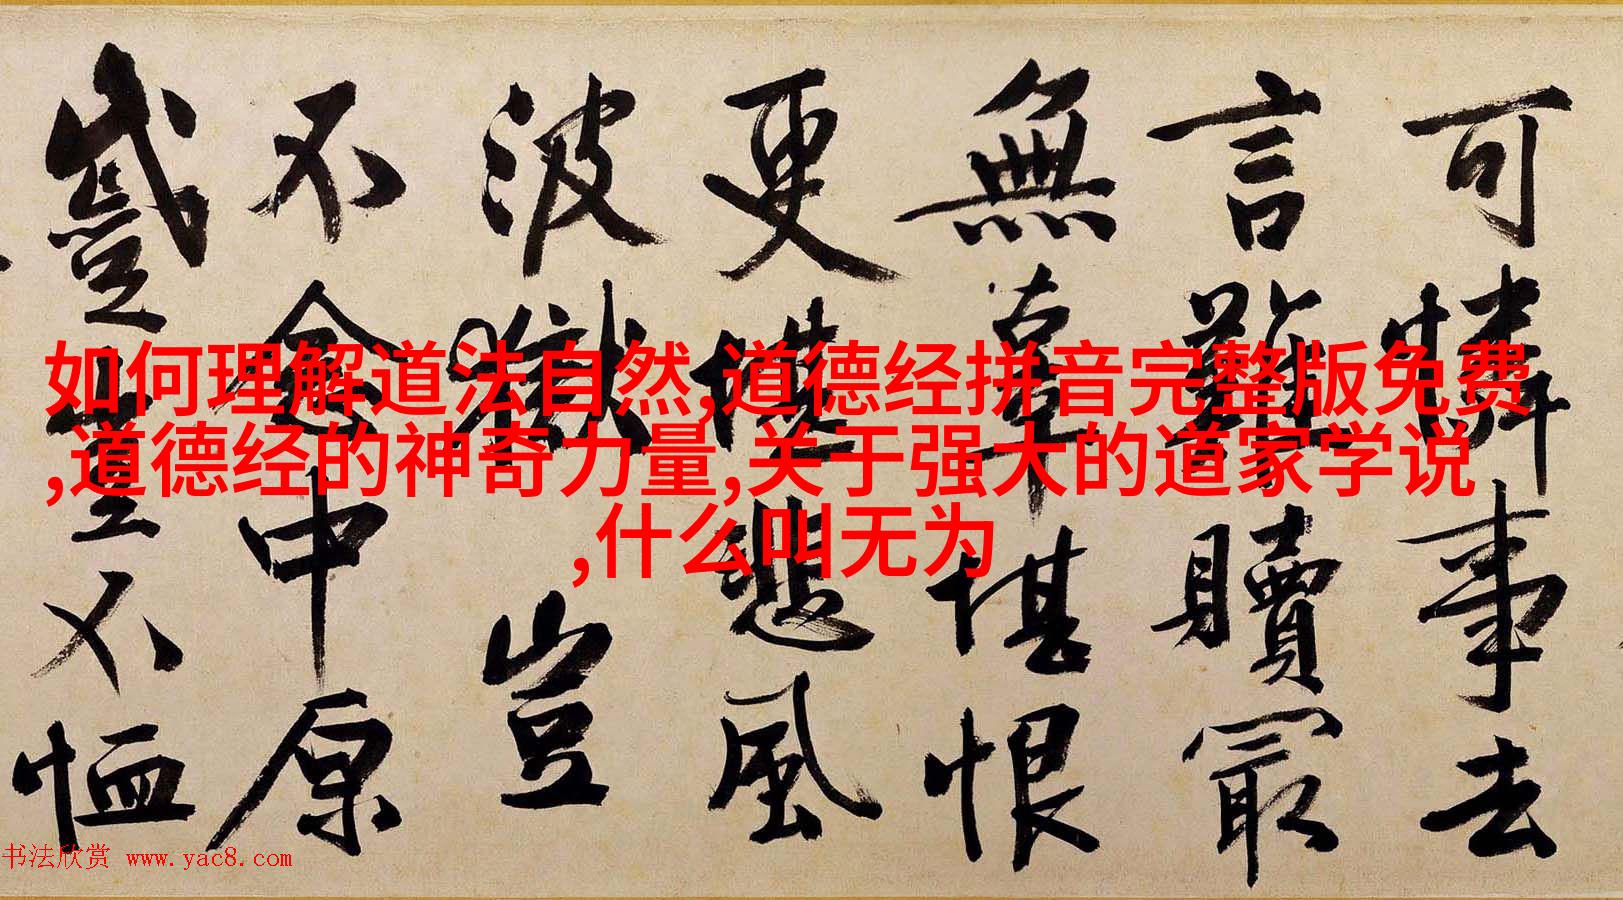 可憐事去
言難贖最
無辜堪恨
更堪悲風
波獄豈
不念中原
蹙豈不恤
如何理解道法自然,道德经拼音完整版免费
,道德经的神奇力量,关于强大的道家学说
,什么叫无为
书法欣赏 www.yac8.com